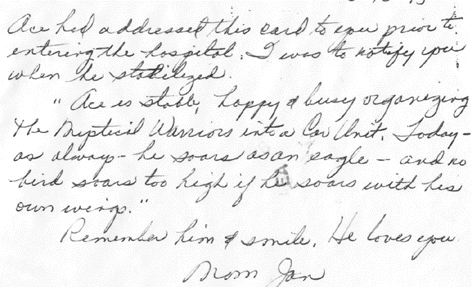 Ace had addressed this card to you prior to
entering the hospital. I was to notify you
when he stabilized.
"Ace is stable, happy & busy organizing
the Mystical Warriors into a Car Unit. Today-
as always - he soars as an eagle - and no
bird soars too high if he soars with his
own wings."
Remember him & smile. He loves you
Mom Jan